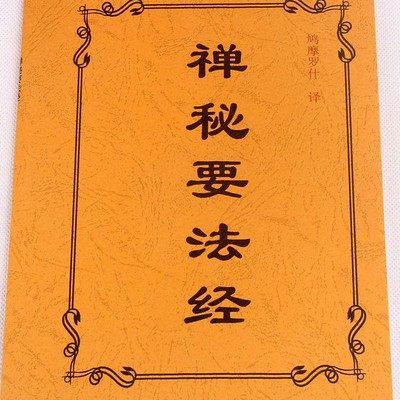 鸠摩罗什 译
禅秘要法经